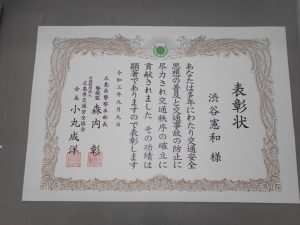 表彰状
渋谷憲和 様
あなたは多年にわたり交通安全
思想の普及と交通事故の防止に
尽力され交通秩序の確立に
貢献されました その功績は
顕著でありますので表彰します
令和三年九月九日
広島県警察本部長
警視監 森内 彰
広島県交通安全協会
会長 小丸成洋